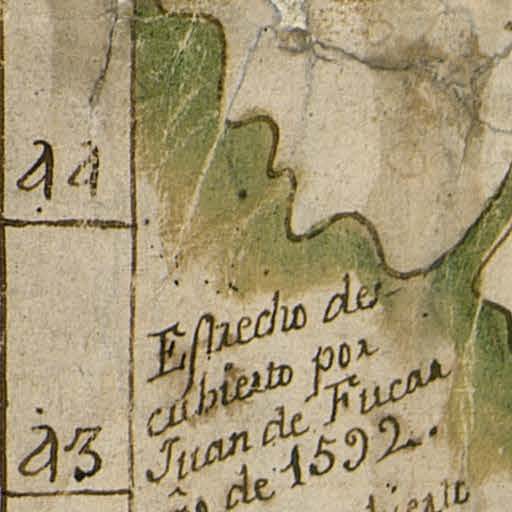 44
Estrecho des-
cubierto por
Juan de Fucar
año de 1592.
43